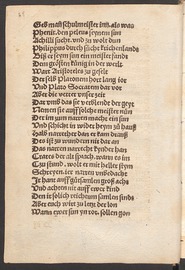 Geb man schulmeister inn als was
Phenix den peleus seynem sun
Achilli sucht und zu wolt dun
Philippus durch sucht krichenlands
Biß er seym sun ein meister fandt
Dem grösten künig in der welt
Wart Aristoteles zu geselt
Der selb Platonem hort lang ior
Vnd Plato Socratem dar vor
Aber die vetter unser zeit
Dar vmb das sie verblende der geyt
Nemen sie auff soliche meister nun
Der in zum narren macht ein sun
Vnd schickt in wider heym zu hauß
Halb narrechter dan er kam drauß
Des ist zu wundern nit dar an
Das narren narrecht kynder han
Crates der alt sprach, wann es im
Zu stund, wolt er mit heller stym
Schreyen, ier narren vnbedacht
Ir hant auff gut samlen groß ach
Vnd achten nit auff ewer kind
Den ir solich richtum samlen sind
Aber euch wirt zu letz der lon
Wann ewer sun in rot sollen gon